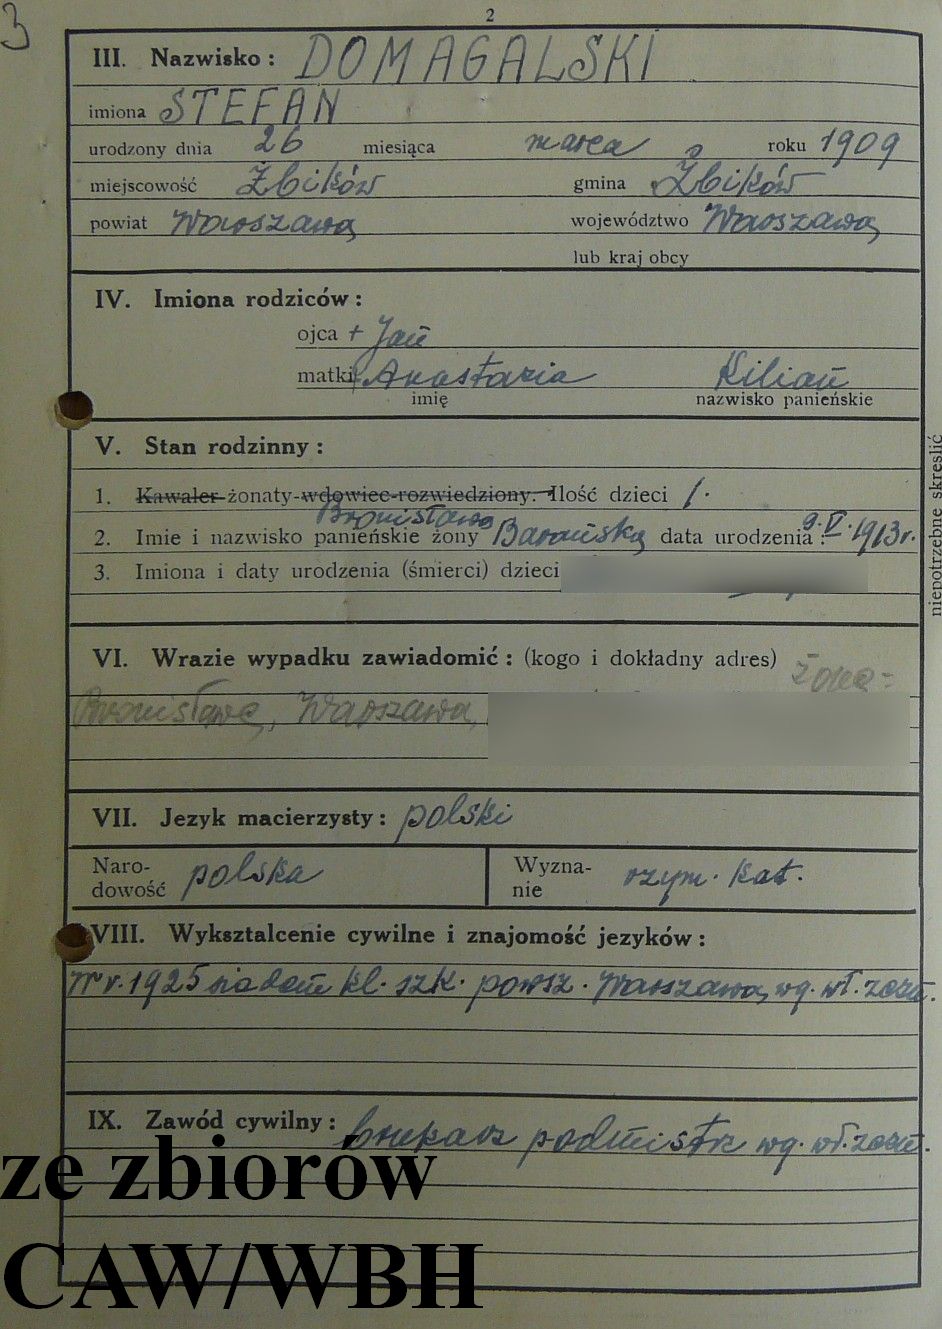 3
2
III. Nazwisko: DOMAGALSKI
imiona STEFAN
urodzony dnia 26 miesiąca marca roku 1909
miejscowość Żbików gmina Żbików
powiat Warszawa województwo Warszawa
lub kraj obcy
IV. Imiona rodziców:
ojca + Jan
matki Anastazia Kilian
imię nazwisko panieńskie
V. Stan rodzinny:
1. Kawaler-żonaty-wdowiec-rozwiedziony. Ilość dzieci 1.
Bronisława
2. Imie i nazwisko panieńskie żony Barańska data urodzenia: 9.V.1913r.
3. Imiona i daty urodzenia (śmierci) dzieci
niepotrzebne skreślić
VI. Wrazie wypadku zawiadomić: (kogo i dokładny adres) żonę=
Bronisławę, Warszawa,
VII. Jezyk macierzysty: polski
Naro-
dowość polska
Wyzna-
nie rzym. kat.
VIII. Wyksztalcenie cywilne i znajomość jezyków:
W r. 1925 siedem kl. szk. powsz. Warszawa, wg. wł. zezn.
IX. Zawód cywilny: brukarz podmistrz wg. wł. zezn.
ze zbiorów
CAW/WBH